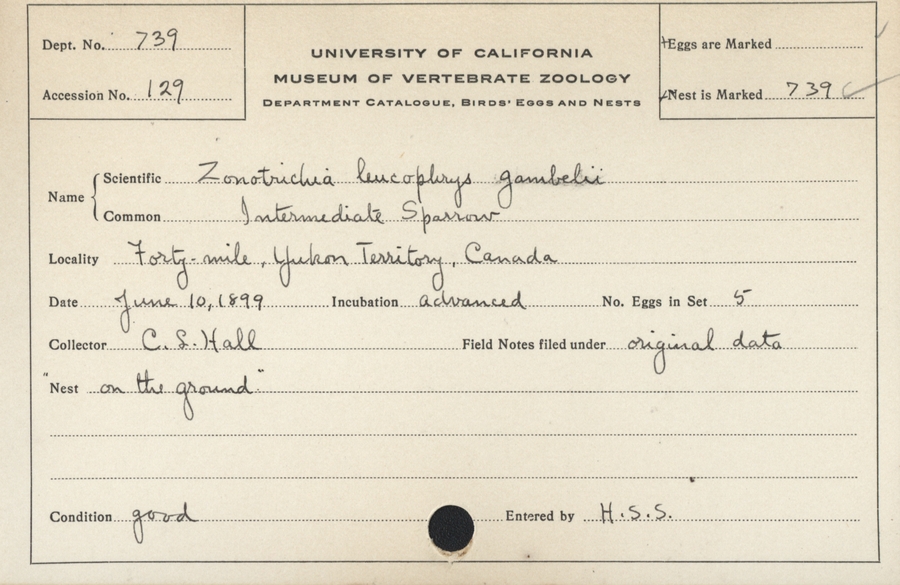 Dept. No. 739
Accession No. 129
UNIVERSITY OF CALIFORNIA
MUSEUM OF VERTEBRATE ZOOLOGY
DEPARTMENT CATALOGUE, BIRDS' EGGS AND NESTS
Eggs are Marked
Nest is Marked 739
Name
Scientific Zonotrichia leucophrys gambelii
Common Intermediate Sparrow
Locality Forty-mile, Yukon Territory, Canada
Date June 10, 1899 Incubation advanced No. Eggs in Set 5
Collector C. L. Hall Field Notes filed under original data
"Nest on the ground"
Condition good Entered by H.S.S.